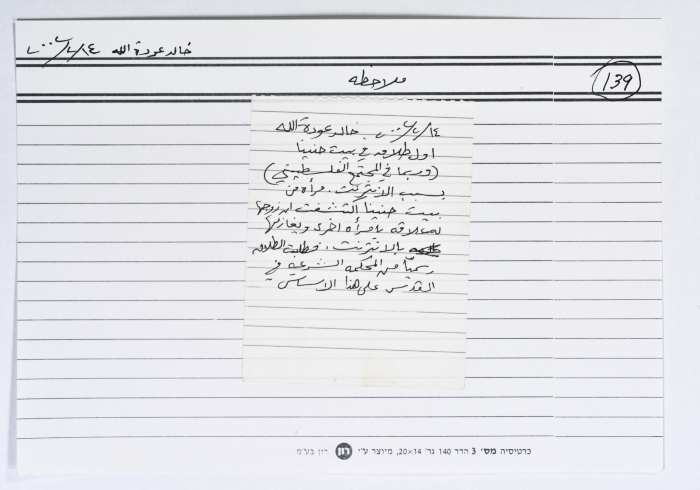 خالد عودة الله ١٤/٦/٢٠٠٦
ملاحظه
139
١٤/٦/٢٠٠٦ خالد عودة الله
اول طلاق في بيت حنينا
(وربما في المجتمع الفلسطيني)
بسبب الانترنت. مرأه من
بيت حنينا اكتشفت ان زوجها
له علاقه بإمرأه اخرى ويغازلها
بالانترنت، وطلبت الطلاق
رسمياً من المحكمه الشرعية في
القدس على هذا الاساس
כרטיסיה מס׳ 3 הדר 140 גר׳ 20×14, מיוצר ע״י רון רון בע״מ